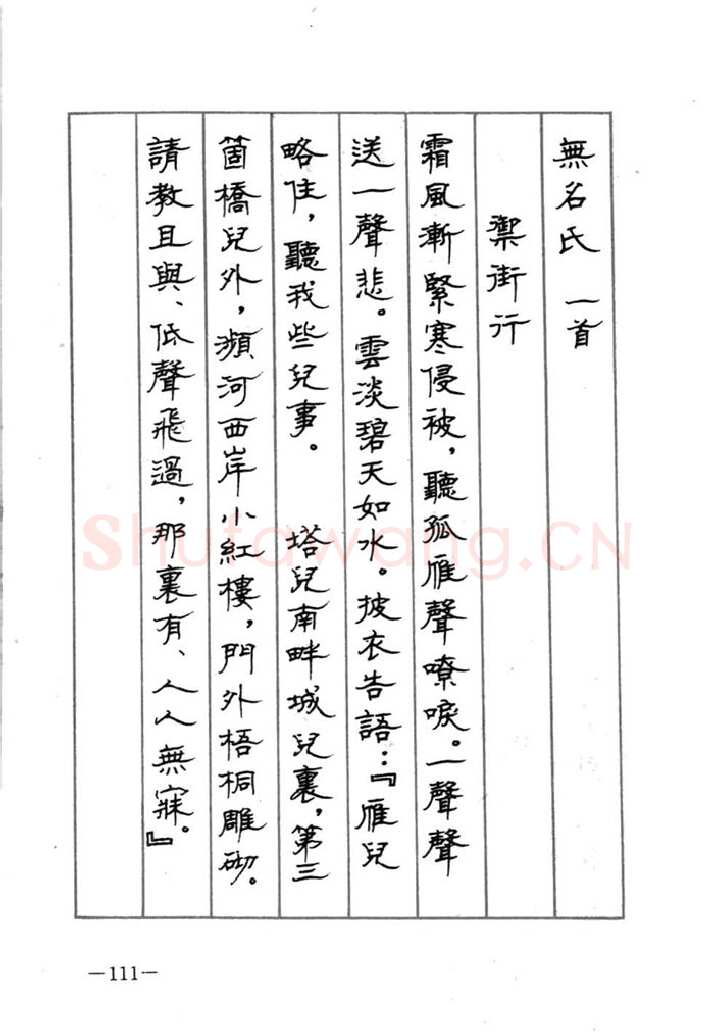 無名氏 一首
禦街行
霜風漸緊寒侵被，聽孤雁聲嘹唳。一聲聲
送一聲悲。雲淡碧天如水。披衣告語：『雁兒
略住，聽我些兒事。 塔兒南畔城兒裏，第三
箇橋兒外，瀕河西岸小紅樓，門外梧桐雕砌。
請教且與、低聲飛過，那裏有、人人無寐。』
Shufawang.CN
—111—